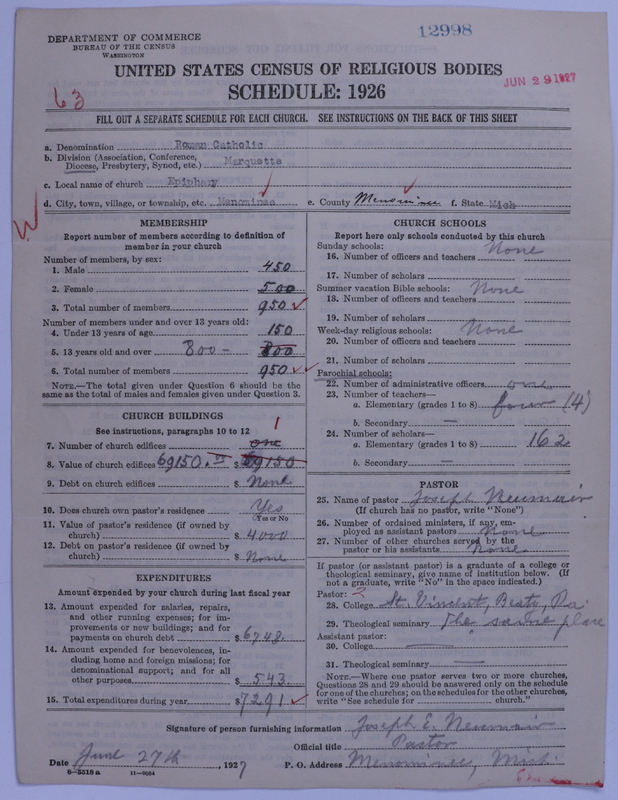 12998
DEPARTMENT OF COMMERCE
BUREAU OF THE CENSUS
WASHINGTON
UNITED STATES CENSUS OF RELIGIOUS BODIES
JUN 29 1927
63
SCHEDULE: 1926
FILL OUT A SEPARATE SCHEDULE FOR EACH CHURCH. SEE INSTRUCTIONS ON THE BACK OF THIS SHEET
a. Denomination Roman Catholic
b. Division (Association, Conference, Diocese, Presbytery, Synod, etc.) Marquette
c. Local name of church Epiphany
d. City, town, village, or township, etc. Menominee e. County Menominee f. State Mich
MEMBERSHIP
Report number of members according to definition of
member in your church
Number of members, by sex:
1. Male 450
2. Female 500
3. Total number of members 950
Number of members under and over 13 years old:
4. Under 13 years of age 150
5. 13 years old and over 800- 800
6. Total number of members 950
NOTE.—The total given under Question 6 should be the
same as the total of males and females given under Question 3.
CHURCH BUILDINGS
See instructions, paragraphs 10 to 12
1
7. Number of church edifices one
8. Value of church edifices 69150. $ 69150
9. Debt on church edifices $ None
10. Does church own pastor's residence Yes
(Yes or No)
11. Value of pastor's residence (if owned by
church) $ 4000
12. Debt on pastor's residence (if owned by
church) $ None
EXPENDITURES
Amount expended by your church during last fiscal year
13. Amount expended for salaries, repairs,
and other running expenses; for im-
provements or new buildings; and for
payments on church debt $ 6748.
14. Amount expended for benevolences, in-
cluding home and foreign missions; for
denominational support; and for all
other purposes $ 543
15. Total expenditures during year $ 7291
CHURCH SCHOOLS
Report here only schools conducted by this church
Sunday schools: None
16. Number of officers and teachers
17. Number of scholars
Summer vacation Bible schools: None
18. Number of officers and teachers
19. Number of scholars
Week-day religious schools: None
20. Number of officers and teachers
21. Number of scholars
Parochial schools:
22. Number of administrative officers one
23. Number of teachers—
a. Elementary (grades 1 to 8) four (4)
b. Secondary —
24. Number of scholars—
a. Elementary (grades 1 to 8) 162
b. Secondary —
PASTOR
25. Name of pastor Joseph Neumair
(If church has no pastor, write "None")
26. Number of ordained ministers, if any, em-
ployed as assistant pastors None
27. Number of other churches served by the
pastor or his assistants None
If pastor (or assistant pastor) is a graduate of a college or
theological seminary, give name of institution below. (If
not a graduate, write "No" in the space indicated.)
Pastor: 2
28. College St. Vincent, Beatty, Pa.
29. Theological seminary The same place
Assistant pastor:
30. College —
31. Theological seminary —
NOTE.—Where one pastor serves two or more churches,
Questions 28 and 29 should be answered only on the schedule
for one of the churches; on the schedules for the other churches,
write "See schedule for church."
Signature of person furnishing information Joseph E. Neumair
Official title Pastor
Date June 27th, 1927 P. O. Address Menominee, Mich.
8-5518a 11-9034